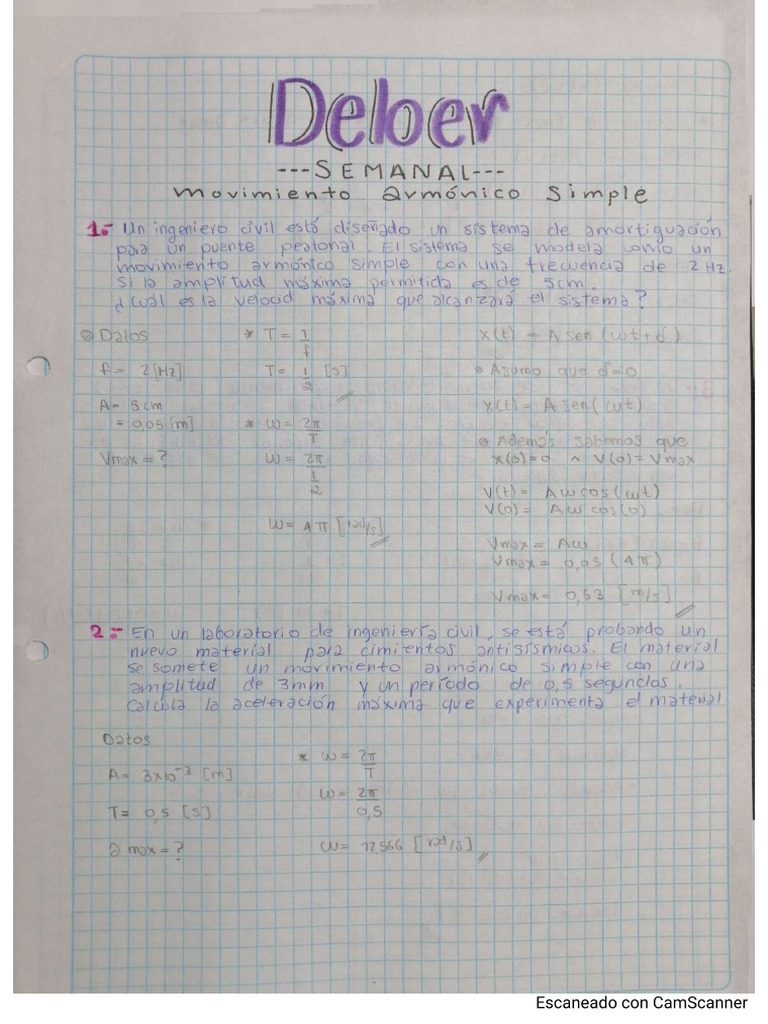 Deber
---SEMANAL---
Movimiento armónico Simple
1.- Un ingeniero civil está diseñado un sistema de amortiguación
para un puente peatonal. El sistema se modela como un
movimiento armónico simple con una frecuencia de 2 Hz.
Si la amplitud máxima permitida es de 5cm.
¿Cuál es la velocid máxima que alcanzará el sistema?
Datos
f = 2 [Hz]
A = 5 cm
= 0,05 [m]
Vmax = ?
* T = 1/f
T = 1/2 [s]
* ω = 2π/T
ω = 2π/(1/2)
ω = 4π [rad/s]
x(t) = A sen (ωt + δ)
Asumo que δ=0
x(t) = A sen( ωt)
Además sabemos que
x(0)=0 ^ V(0)=Vmax
V(t) = Aωcos(ωt)
V(0) = Aωcos(0)
Vmax = Aω
Vmax = 0,05 (4π)
Vmax = 0,63 [m/s]
2.- En un laboratorio de ingeniería civil, se está probando un
nuevo material para cimientos antisísmicos. El material
se somete un movimiento armónico simple con una
amplitud de 3mm y un período de 0,5 segundos.
Calcula la aceleración máxima que experimenta el material
Datos
A = 3x10⁻³ [m]
T = 0,5 [s]
a max = ?
* ω = 2π/T
ω = 2π/0,5
ω = 12.566 [rad/s]
Escaneado con CamScanner